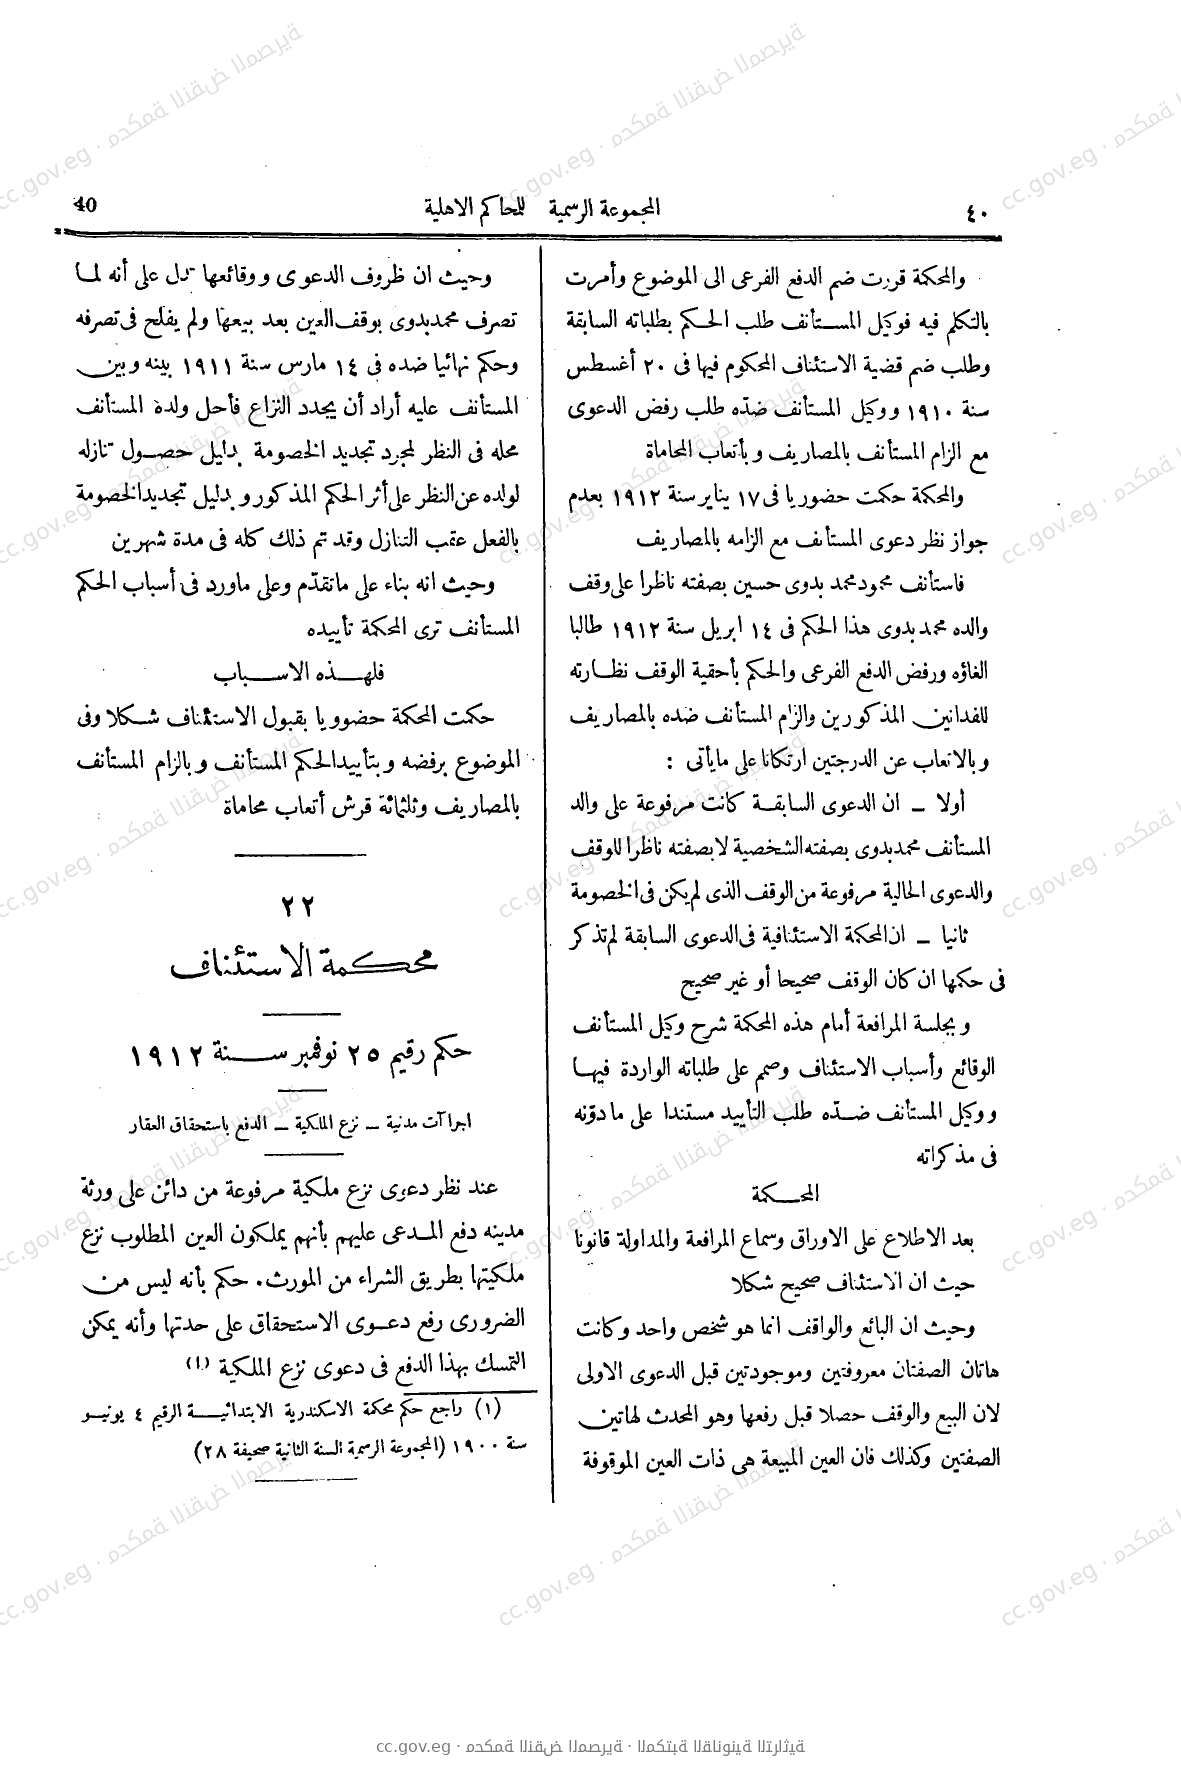 ٤٠
المجموعة الرسمية للمحاكم الاهلية
40
والمحكمة قررت ضم الدفع الفرعى الى الموضوع وأمرت
بالتكلم فيه فوكيل المستأنف طلب الحكم بطلباته السابقة
وطلب ضم قضية الاستئناف المحكوم فيها فى ٢٠ أغسطس
سنة ١٩١٠ ووكيل المستأنف ضدّه طلب رفض الدعوى
مع الزام المستأنف بالمصاريف وبأتعاب المحاماة
والمحكمة حكمت حضوريا فى ١٧ يناير سنة ١٩١٢ بعدم
جواز نظر دعوى المستأنف مع الزامه بالمصاريف
فاستأنف محمود محمد بدوى حسين بصفته ناظرا على وقف
والده محمد بدوى هذا الحكم فى ١٤ ابريل سنة ١٩١٢ طالبا
الغاؤه ورفض الدفع الفرعى والحكم بأحقية الوقف نظارته
للفدانين المذكورين والزام المستأنف ضده بالمصاريف
وبالاتعاب عن الدرجتين ارتكانا على مايأتى :
أولا ــ ان الدعوى السابقة كانت مرفوعة على والد
المستأنف محمد بدوى بصفته الشخصية لا بصفته ناظرا للوقف
والدعوى الحالية مرفوعة من الوقف الذى لم يكن فى الخصومة
ثانيا ــ ان المحكمة الاستئنافية فى الدعوى السابقة لم تذكر
فى حكمها ان كان الوقف صحيحا أو غير صحيح
وبجلسة المرافعة أمام هذه المحكمة شرح وكيل المستأنف
الوقائع وأسباب الاستئناف وصمم على طلباته الواردة فيها
ووكيل المستأنف ضدّه طلب التأييد مستندا على مادوّنه
فى مذكراته
المحكمة
بعد الاطلاع على الاوراق وسماع المرافعة والمداولة قانونا
حيث ان الاستئناف صحيح شكلا
وحيث ان البائع والواقف انما هو شخص واحد وكانت
هاتان الصفتان معروفتين وموجودتين قبل الدعوى الاولى
لان البيع والوقف حصلا قبل رفعها وهو المحدث لهاتين
الصفتين وكذلك فان العين المبيعة هى ذات العين الموقوفة
وحيث ان ظروف الدعوى ووقائعها تدل على أنه لما
تصرف محمد بدوى بوقف العين بعد بيعها ولم يفلح فى تصرفه
وحكم نهائيا ضده فى ١٤ مارس سنة ١٩١١ بينه وبين
المستأنف عليه أراد أن يجدد النزاع فأحل ولده المستأنف
محله فى النظر لمجرد تجديد الخصومة بدليل حصول تنازله
لولده عن النظر على أثر الحكم المذكور وبدليل تجديد الخصومة
بالفعل عقب التنازل وقد تم ذلك كله فى مدة شهرين
وحيث انه بناء على ماتقدّم وعلى ماورد فى أسباب الحكم
المستأنف ترى المحكمة تأييده
فلهذه الاسباب
حكمت المحكمة حضوريا بقبول الاستئناف شكلا وفى
الموضوع برفضه وبتأييد الحكم المستأنف وبالزام المستأنف
بالمصاريف وثلثمائة قرش أتعاب محاماة
٢٢
محكمة الاستئناف
حكم رقيم ٢٥ نوفمبر سنة ١٩١٢
اجراآت مدنية ــ نزع الملكية ــ الدفع باستحقاق العقار
عند نظر دعوى نزع ملكية مرفوعة من دائن على ورثة
مدينه دفع المدعى عليهم بأنهم يملكون العين المطلوب نزع
ملكيتها بطريق الشراء من المورث. حكم بأنه ليس من
الضرورى رفع دعوى الاستحقاق على حدتها وأنه يمكن
التمسك بهذا الدفع فى دعوى نزع الملكية (١)
(١) راجع حكم محكمة الاسكندرية الابتدائية الرقيم ٤ يونيو
سنة ١٩٠٠ (المجموعة الرسمية السنة الثانية صحيفة ٢٨)
cc.gov.eg · محكمة النقض المصرية · المكتبة القانونية التراثية